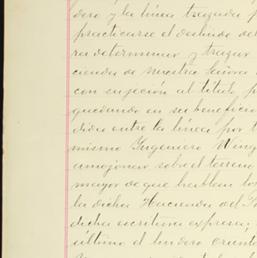 dero y la línea trazada p
practicarse el deslinde del
ra determinar y trazar
cienda de Nuestra Señora
con sujeción al título p
quedando en su beneficio
dida entre la línea por t
mismo Ingeniero Wing
amojonar sobre el terreno
mayor de que hablan los
la dicha Hacienda del P
dicha escritura expresa;
último el lindero orient